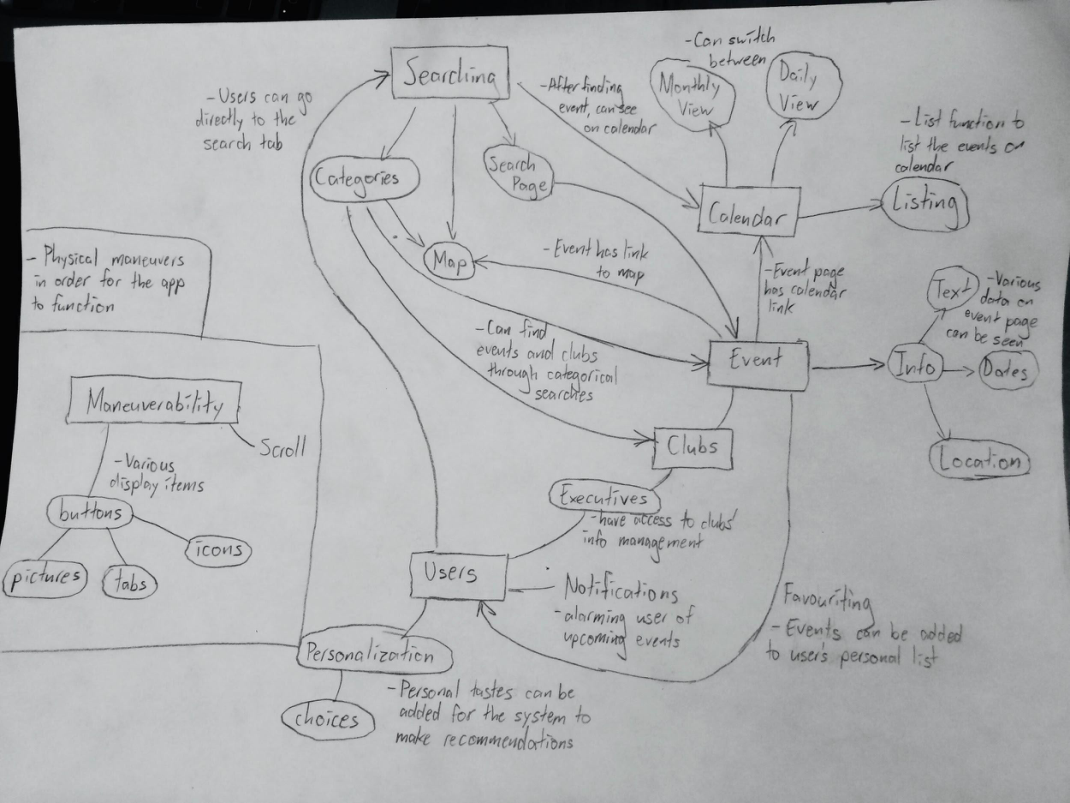 Searching
-Users can go
directly to the
search tab
-After finding
event, can see
on calendar
-Can switch
between
Monthly
View
Daily
View
-List function to
list the events on
calendar
Categories
Search
Page
Calendar
Listing
- Physical maneuvers
in order for the app
to function
Map
-Event has link
to map
-Event page
has calendar
link
Text
-Various
data on
event page
can be seen
-Can find
events and clubs
through categorical
searches
Event
Info
Dates
Maneuverability
Scroll
Clubs
Location
-Various
display items
Executives
-have access to clubs'
info management
buttons
icons
pictures
tabs
Users
Notifications
-alarming user of
upcoming events
Favouriting
- Events can be added
to user's personal list
Personalization
choices
-Personal tastes can be
added for the system to
make recommendations